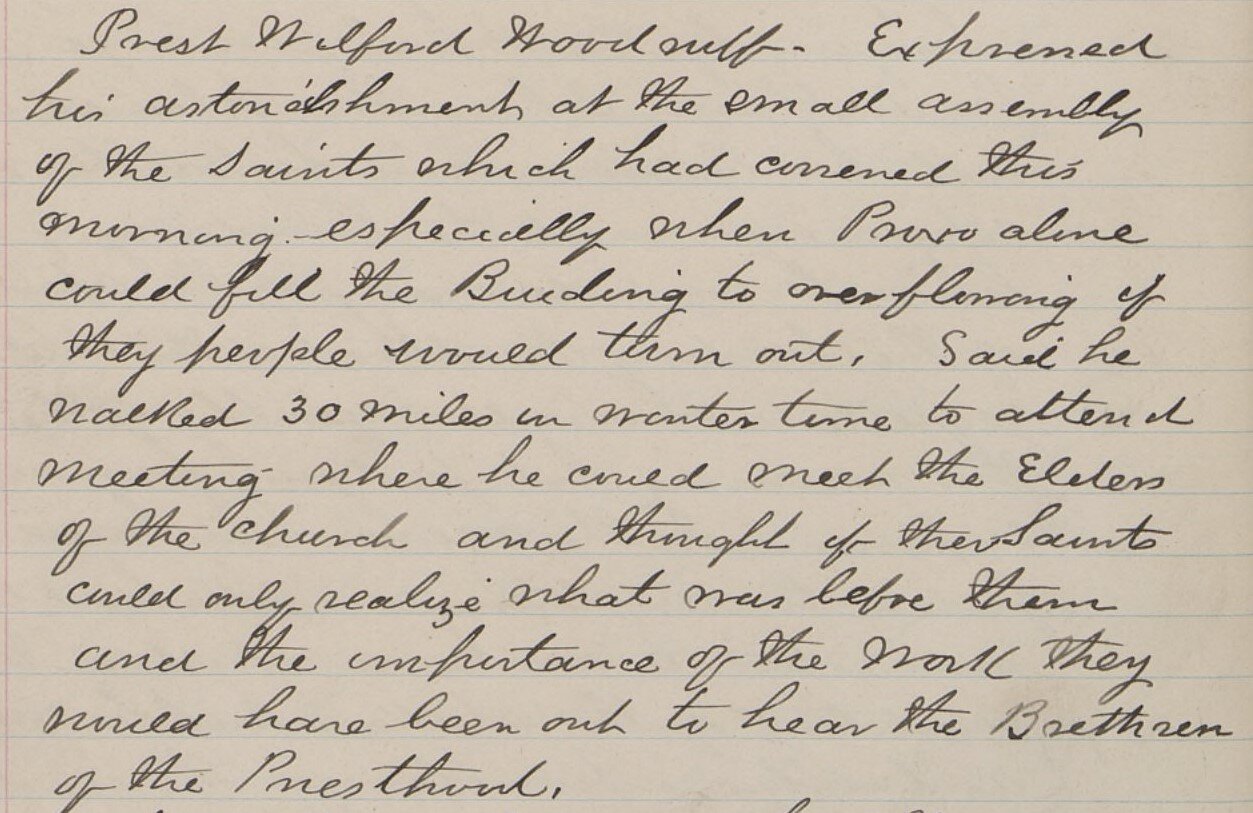 Prest Wilford Woodruff - Expressed
his astonishment at the small assembly
of the Saints which had convened this
morning - especially when Provo alone
could fill the Building to overflowing if
they people would turn out. Said he
walked 30 miles in winter time to attend
meeting where he could meet the Elders
of the church and thought if the Saints
could only realize what was before them
and the importance of the work they
would have been out to hear the Brethren
of the Priesthood.